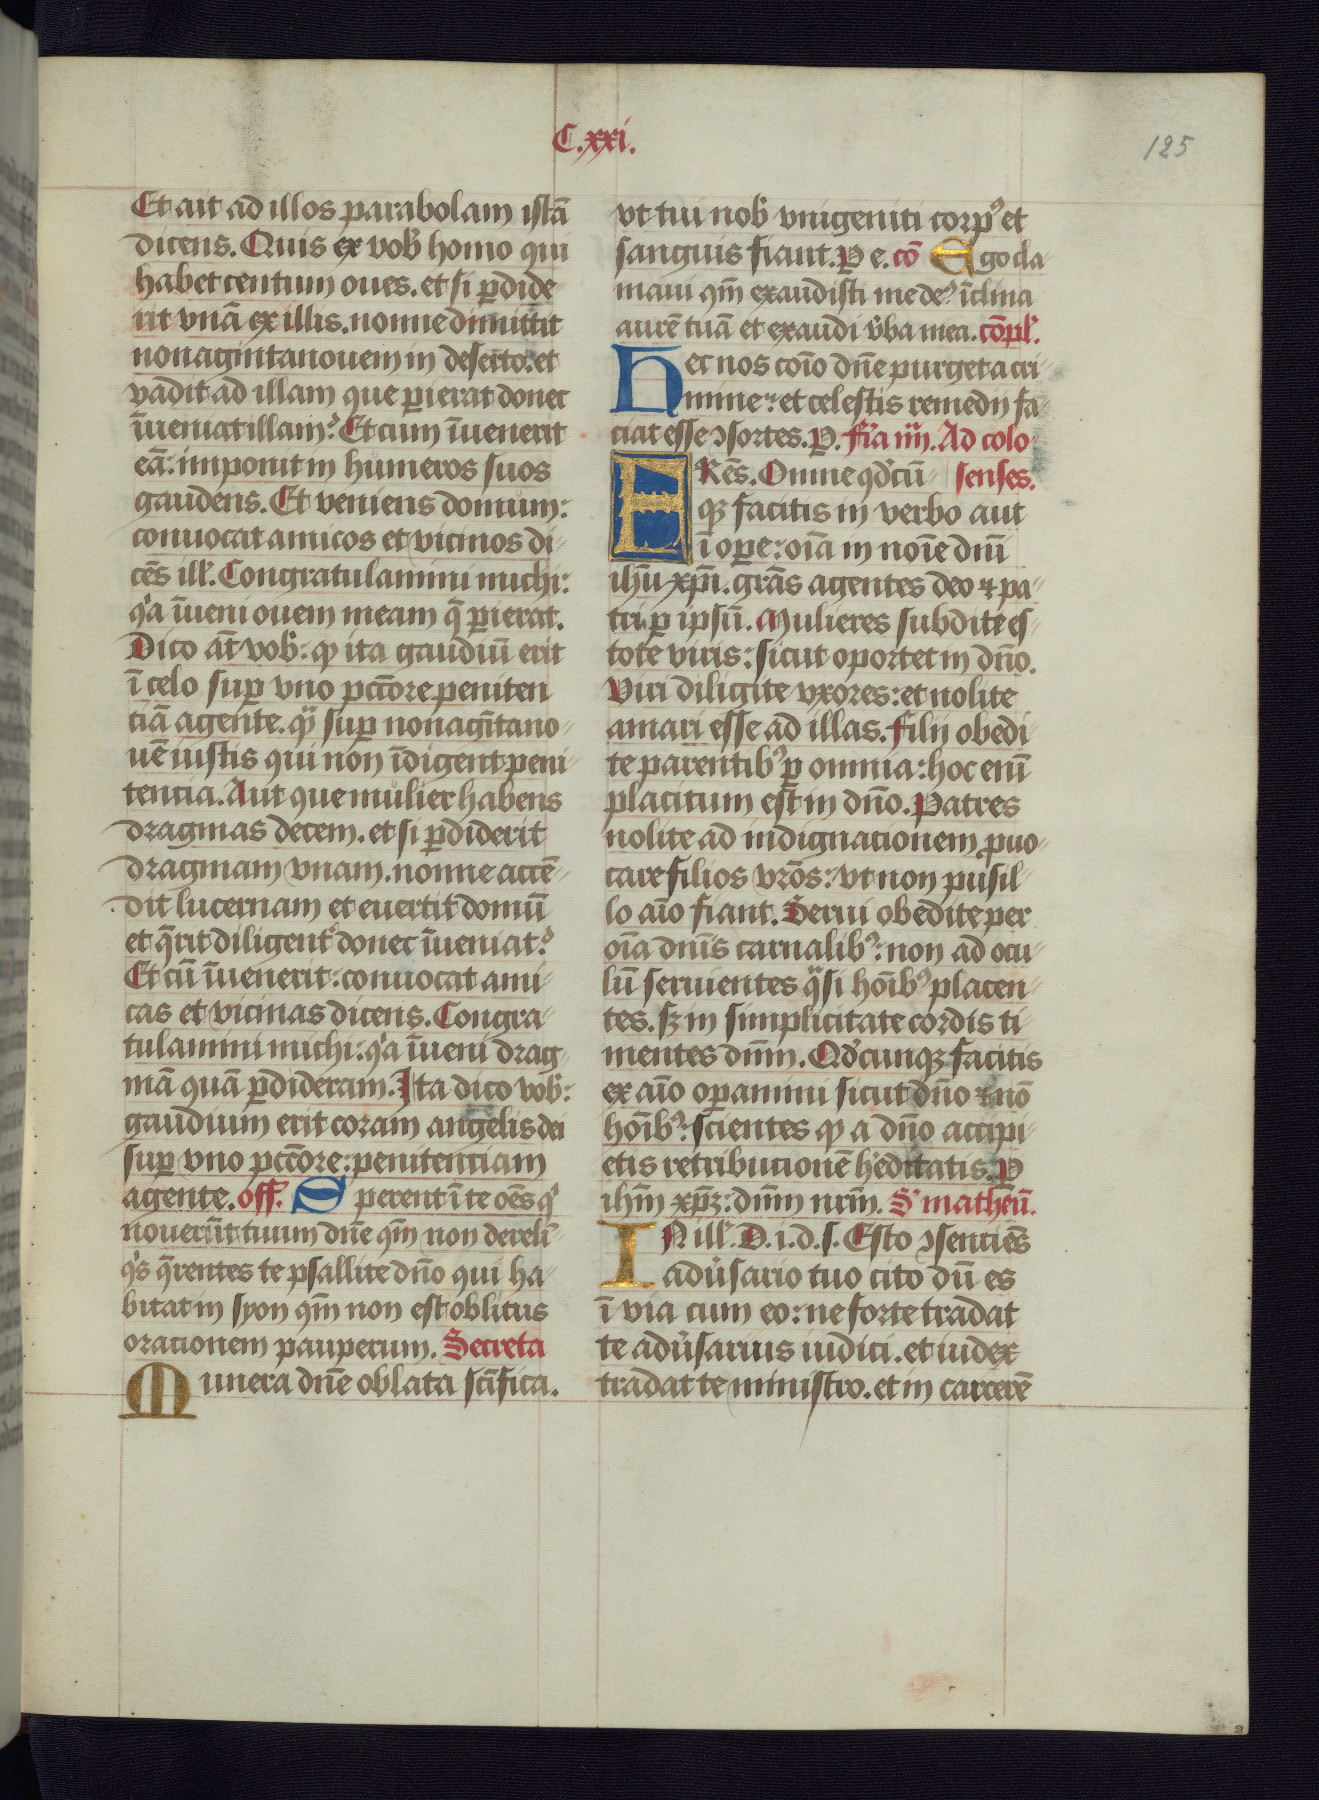 C.xxi.
125
Et ait ad illos parabolam istā
dicens. Quis ex vob̄ homo qui
habet centum oues. et si ꝑdide-
rit vnā ex illis. nonne dimittit
nonagintanouem in deserto. et
vadit ad illam que ꝑierat donec
īueniat illam? Et cum īuenerit
eā: imponit in humeros suos
gaudens. Et veniens domum:
conuocat amicos et vicinos di-
cēs ill'. Congratulamini michi:
q'a īueni ouem meam q̄ ꝑierat.
Dico āt vob̄: ꝙ ita gaudiū erit
ī celo suꝑ vno pctōre peniten
tiā agente. qͣ suꝑ nonagītano-
uē iustis qui non īdigent peni-
tencia. Aut que mulier habens
dragmas decem. et si ꝑdiderit
dragmam vnam. nonne accē-
dit lucernam et euertit domū
et q̄rit diligent' donec īueniat?
Et cū īuenerit: conuocat ami-
cas et vicinas dicens. Congra-
tulamini michi: q'a īueni drag-
mā quā ꝑdideram. Ita dico vob̄:
gaudium erit coram angelis dei
suꝑ vno pctōre: penitenciam
agente. off'. Sperent ī te oēs q'
nouerūt tuum dn̄e qm̄ non derelī-
q's q̄rentes te psallite dn̄o qui ha-
bitat in syon qm̄ non est oblitus
oracionem pauperum. Secreta
Munera dn̄e oblata sc̄ifica.
vt tui nob̄ vnigeniti corpꝰ et
sanguis fiant. P e. cō Ego cla-
maui qm̄ exaudisti me deꝰ īclina
aurē tuā et exaudi v̄ba mea. cōpl'.
Hec nos cōio dn̄e purget a cri-
mine: et celestis remedii fa-
ciat esse ꝯsortes. P. fr̄ia iiii. Ad colo-
senses.
FRēs. Omne qd̄cū-
qꝫ facitis in verbo aut
ī oꝑe: oīa in noīe dn̄i
ih̄u xp̄i. grās agentes deo ⁊ pa-
tri ꝑ ipsū. Mulieres subdite es-
tote viris: sicut oportet in dn̄o.
Viri diligite vxores: et nolite
amari esse ad illas. filii obedi-
te parentibꝰ ꝑ omnia: hoc enī
placitum est in dn̄o. Patres
nolite ad indignacionem ꝓuo-
care filios vrōs: vt non pusil-
lo aīo fiant. Serui obedite per
oīa dn̄is carnalibꝰ: non ad ocu-
lū seruientes qͣsi hoībꝰ placen-
tes. sꝫ in simplicitate cordis ti-
mentes dn̄m. Qd̄cunqꝫ facitis
ex aīo oꝑamini sicut dn̄o ⁊ nō
hoībꝰ: scientes ꝙ a dn̄o accipi-
etis retribucionē h'editatis. P
ih̄m xp̄ꝫ: dn̄m nr̄m. S' matheū.
IN ill'. D. i. d. s. Esto ꝯsenciēs
adu'sario tuo cito dū es
ī via cum eo: ne forte tradat
te adu'sarius iudici. et iudex
tradat te ministro. et in carcerē